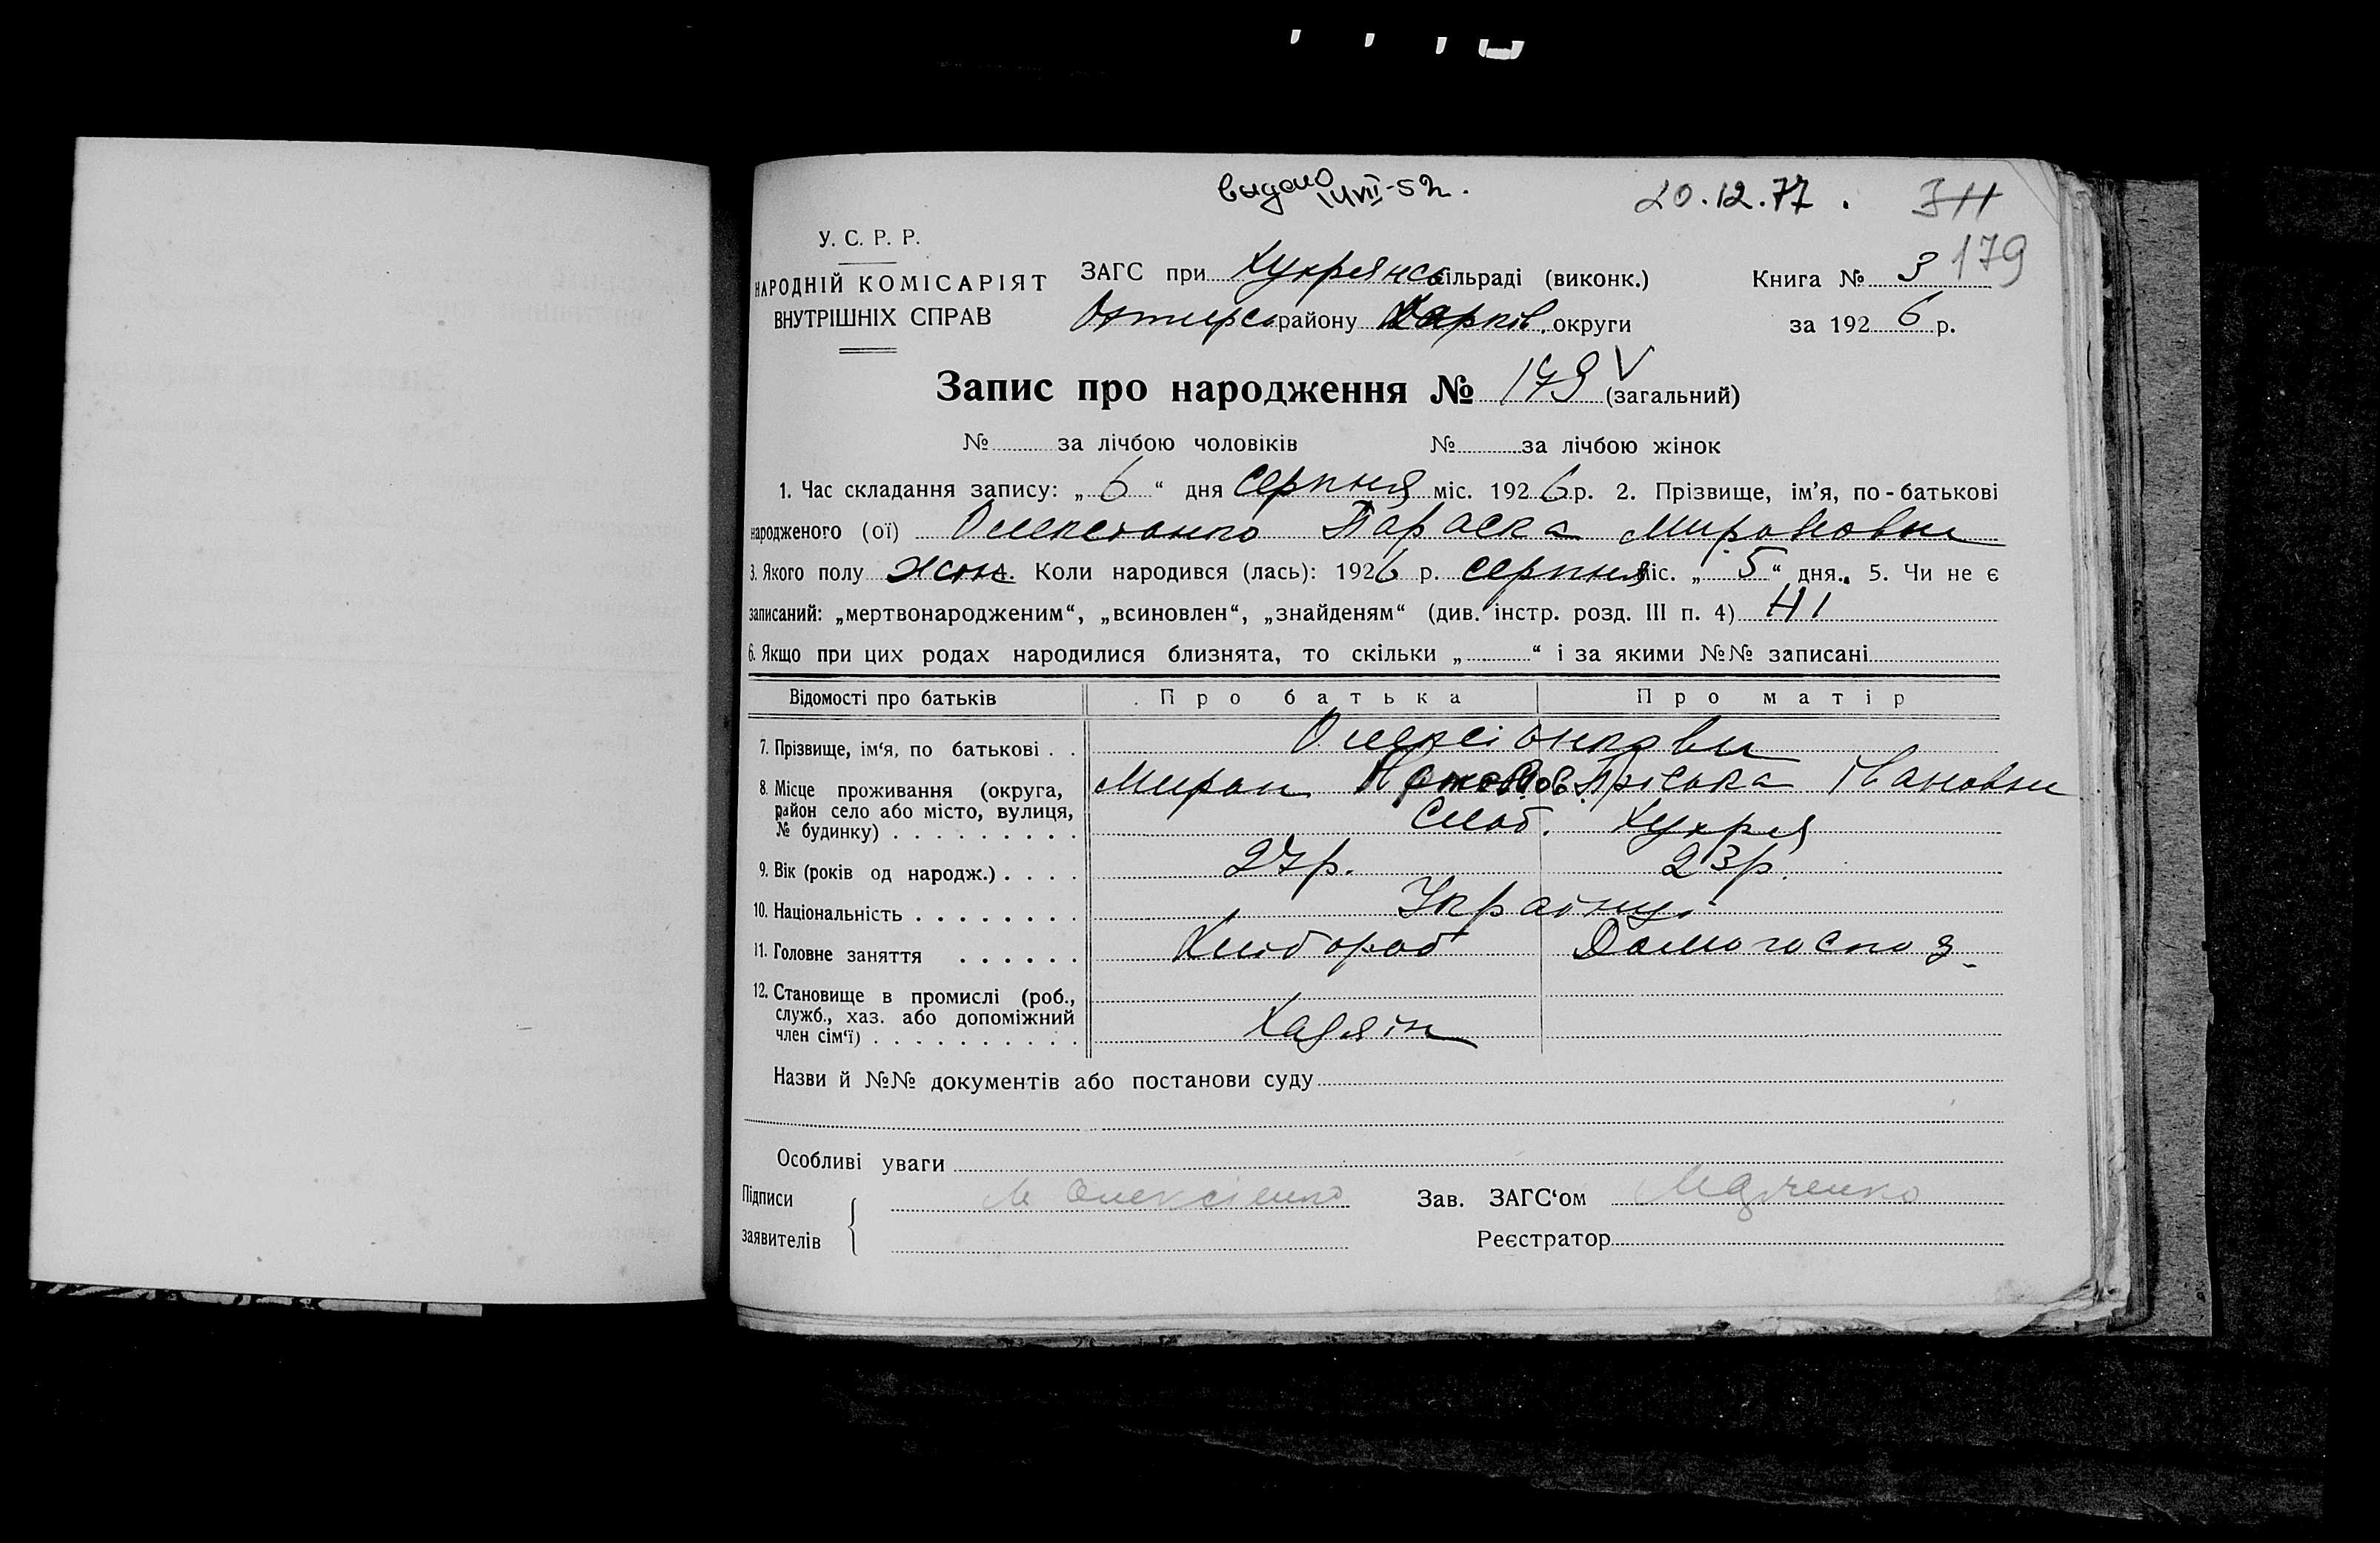 выдано 14/VII-52.
20.12.77.
179
У. С. Р. Р.
НАРОДНІЙ КОМІСАРІЯТ
ВНУТРІШНІХ СПРАВ
ЗАГС при Хухрянсь сільраді (виконк.)
Охтирс району Харків. округи
Книга № 3
за 1926 р.
Запис про народження № 179 V (загальний)
№ за лічбою чоловіків № за лічбою жінок
1. Час складання запису: „ 6 “ дня серпня міс. 1926 р. 2. Прізвище, ім’я, по-батькові
народженого (ої) Олексієнко Параска Мироновна
3. Якого полу жін. 4. Коли народився (лась): 1926 р. серпня міс. „ 5 “ дня. 5. Чи не є
записаний: „мертвонародженим“, „всиновлен“, „знайденям“ (див. інстр. розд. III п. 4) НІ
6. Якщо при цих родах народилися близнята, то скільки „ “ і за якими №№ записані
Відомості про батьків Про батька Про матір
7. Прізвище, ім‘я, по батькові . . Олексієнкови
Мирон Пріська Івановна
8. Місце проживання (округа,
район село або місто, вулиця,
№ будинку) . . . . . . . . . Слоб. Хухря
9. Вік (років од народж.) . . . . 27р. 23р.
10. Національність . . . . . . . . Українці
11. Головне заняття . . . . . . Хлібороб Домогоспод.
12. Становище в промислі (роб.,
служб., хаз. або допоміжний
член сім‘ї) . . . . . . . . . . Хазяін
Назви й №№ документів або постанови суду
Особливі уваги
Підписи
заявителів
М Олексієнко
Зав. ЗАГС‘ом
Реєстратор